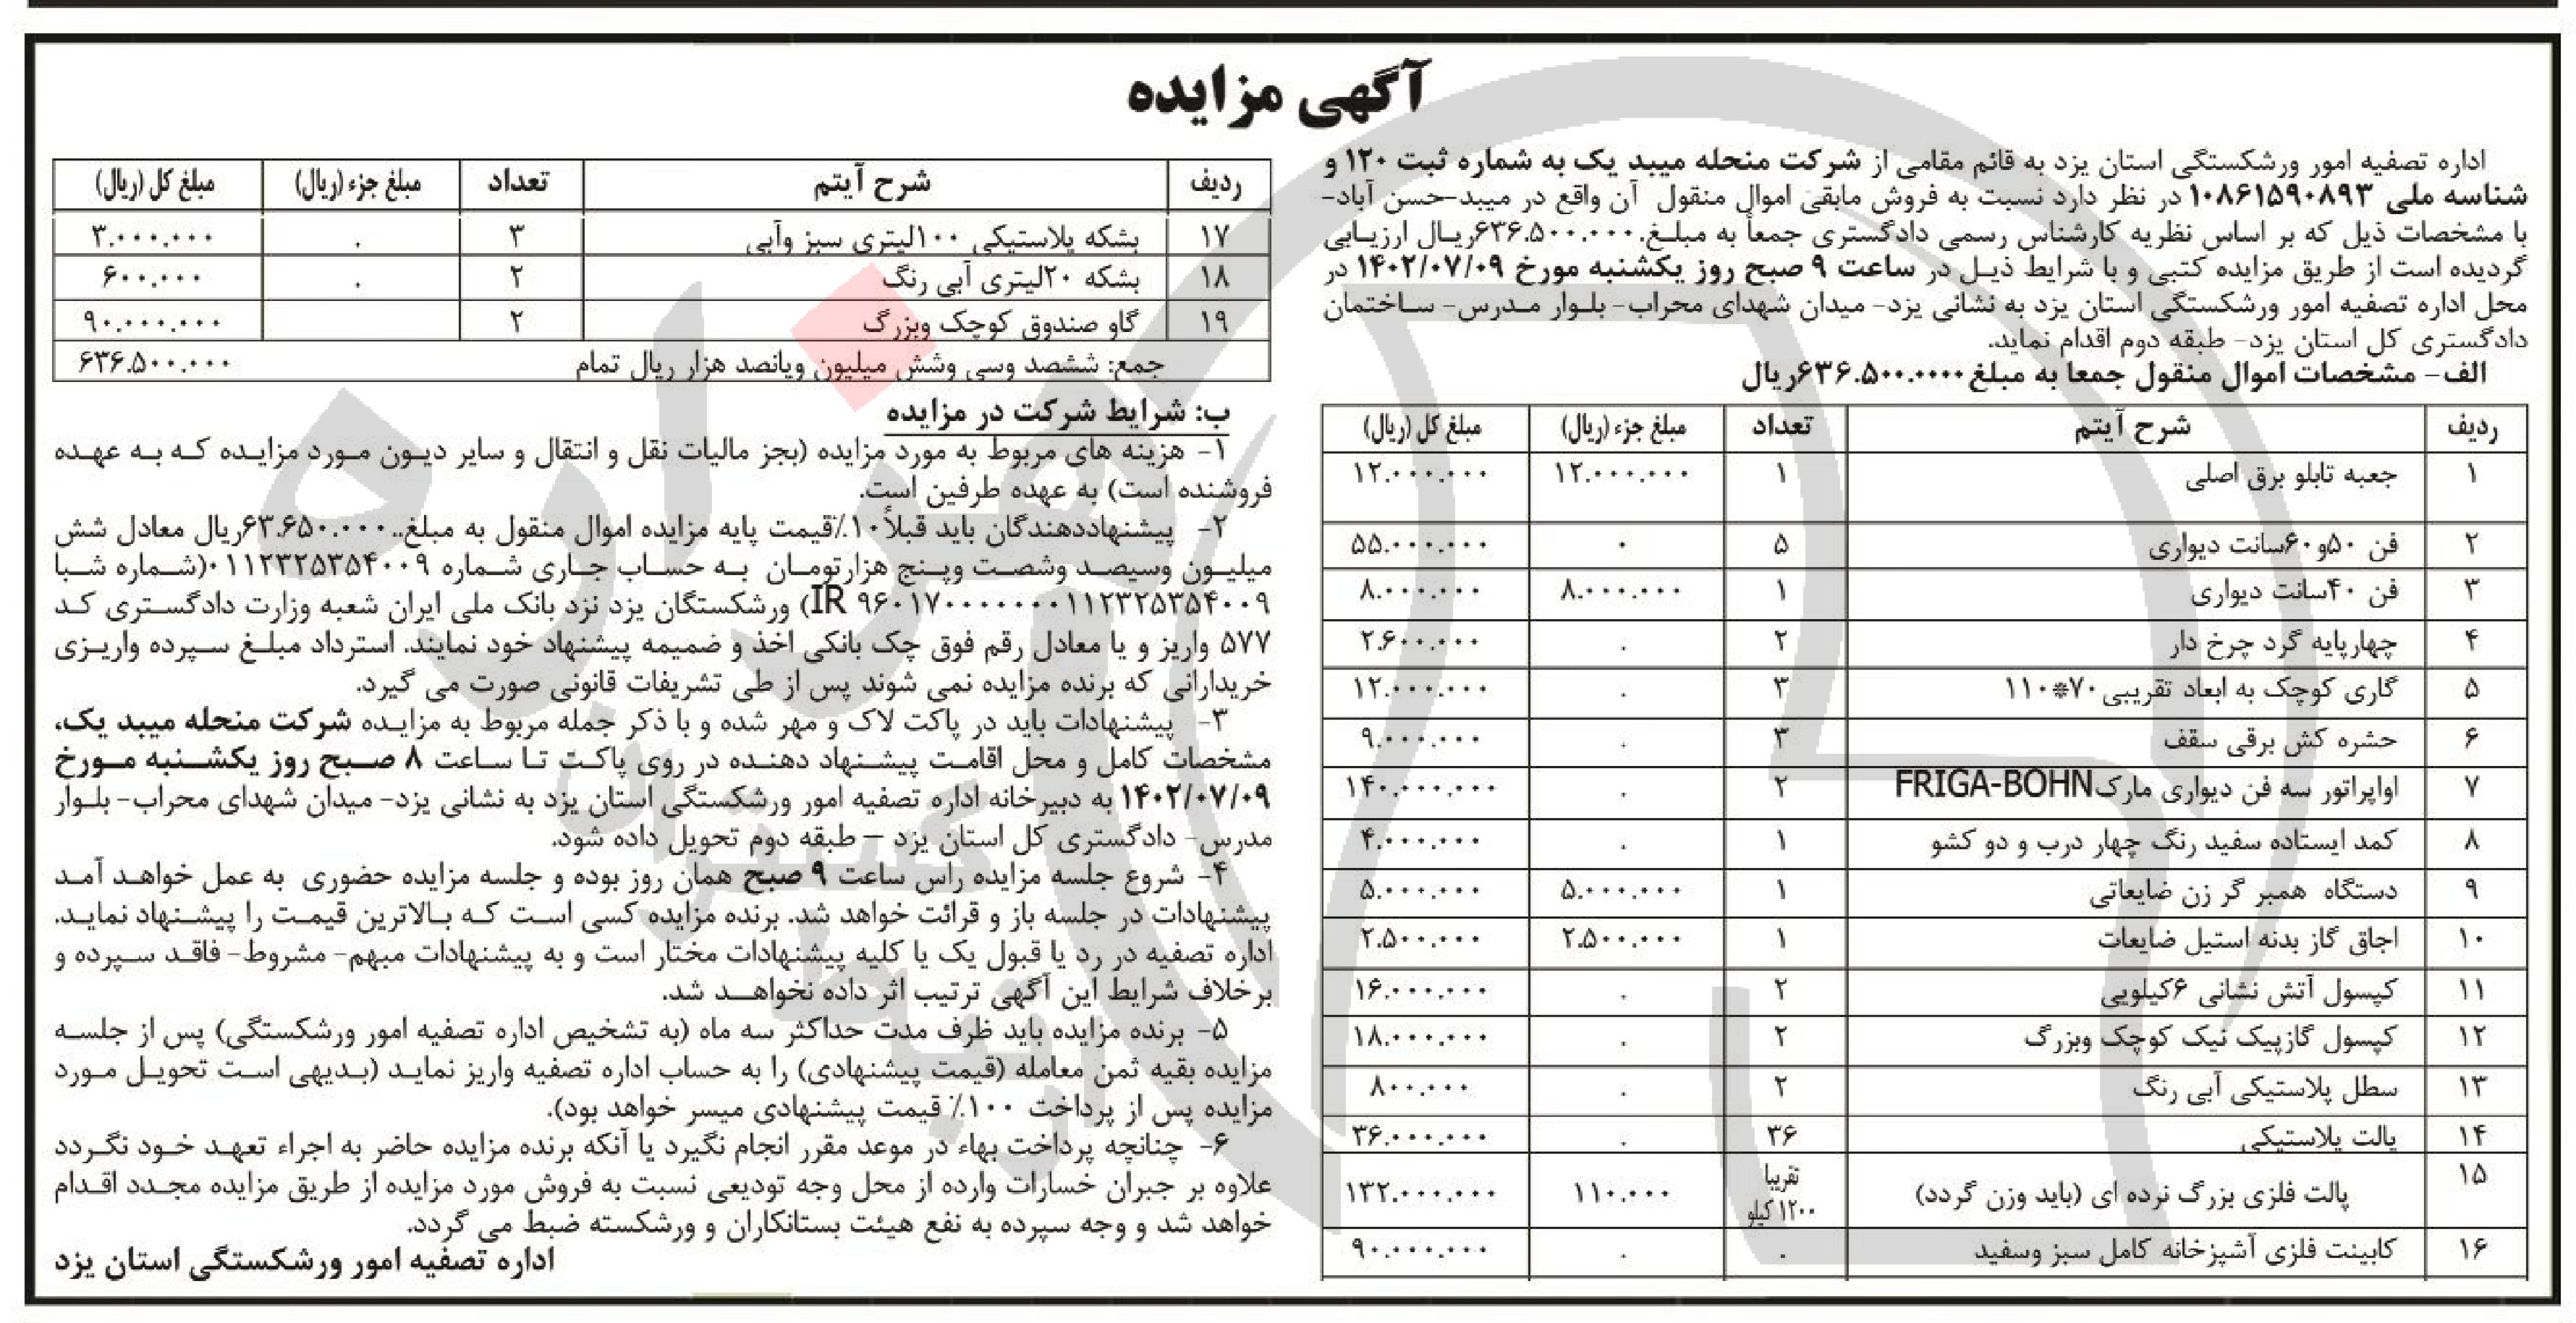 آگهی مزایده
اداره تصفیه امور ورشکستگی استان یزد به قائم مقامی از شرکت منحله میبد یک به شماره ثبت ۱۲۰ و
شناسه ملی ۱۰۸۶۱۵۹۰۸۹۳ در نظر دارد نسبت به فروش مابقی اموال منقول آن واقع در میبد-حسن آباد-
با مشخصات ذیل که بر اساس نظریه کارشناس رسمی دادگستری جمعاً به مبلغ ۶۳۶.۵۰۰.۰۰۰.ریال ارزیابی
گردیده است از طریق مزایده کتبی و با شرایط ذیل در ساعت ۹ صبح روز یکشنبه مورخ ۱۴۰۲/۰۷/۰۹ در
محل اداره تصفیه امور ورشکستگی استان یزد به نشانی یزد- میدان شهدای محراب- بلوار مدرس- ساختمان
دادگستری کل استان یزد- طبقه دوم اقدام نماید.
الف- مشخصات اموال منقول جمعا به مبلغ ۶۳۶.۵۰۰.۰۰۰۰ریال
ردیف شرح آیتم تعداد مبلغ جزء (ریال) مبلغ کل (ریال)
۱ جعبه تابلو برق اصلی ۱ ۱۲.۰۰۰.۰۰۰ ۱۲.۰۰۰.۰۰۰
۲ فن ۵۰و۶۰سانت دیواری ۵ ۰ ۵۵.۰۰۰.۰۰۰
۳ فن ۴۰سانت دیواری ۱ ۸.۰۰۰.۰۰۰ ۸.۰۰۰.۰۰۰
۴ چهارپایه گرد چرخ دار ۲ ۰ ۲.۶۰۰.۰۰۰
۵ گاری کوچک به ابعاد تقریبی ۷۰*۱۱۰ ۳ ۰ ۱۲.۰۰۰.۰۰۰
۶ حشره کش برقی سقف ۳ ۰ ۹.۰۰۰.۰۰۰
۷ اواپراتور سه فن دیواری مارک FRIGA-BOHN ۲ ۰ ۱۴۰.۰۰۰.۰۰۰
۸ کمد ایستاده سفید رنگ چهار درب و دو کشو ۱ ۰ ۴.۰۰۰.۰۰۰
۹ دستگاه همبر گر زن ضایعاتی ۱ ۵.۰۰۰.۰۰۰ ۵.۰۰۰.۰۰۰
۱۰ اجاق گاز بدنه استیل ضایعات ۱ ۲.۵۰۰.۰۰۰ ۲.۵۰۰.۰۰۰
۱۱ کپسول آتش نشانی ۶کیلویی ۲ ۰ ۱۶.۰۰۰.۰۰۰
۱۲ کپسول گازپیک نیک کوچک وبزرگ ۲ ۰ ۱۸.۰۰۰.۰۰۰
۱۳ سطل پلاستیکی آبی رنگ ۲ ۰ ۸۰۰.۰۰۰
۱۴ پالت پلاستیکی ۳۶ ۰ ۳۶.۰۰۰.۰۰۰
۱۵ پالت فلزی بزرگ نرده ای (باید وزن گردد) تقریبا ۱۲۰۰کیلو ۱۱۰.۰۰۰ ۱۳۲.۰۰۰.۰۰۰
۱۶ کابینت فلزی آشپزخانه کامل سبز وسفید ۰ ۰ ۹۰.۰۰۰.۰۰۰
ردیف شرح آیتم تعداد مبلغ جزء (ریال) مبلغ کل (ریال)
۱۷ بشکه پلاستیکی ۱۰۰لیتری سبز وآبی ۳ ۰ ۳.۰۰۰.۰۰۰
۱۸ بشکه ۲۰لیتری آبی رنگ ۲ ۰ ۶۰۰.۰۰۰
۱۹ گاو صندوق کوچک وبزرگ ۲ ۹۰.۰۰۰.۰۰۰
جمع: ششصد وسی وشش میلیون وپانصد هزار ریال تمام ۶۳۶.۵۰۰.۰۰۰
ب: شرایط شرکت در مزایده
۱- هزینه های مربوط به مورد مزایده (بجز مالیات نقل و انتقال و سایر دیون مورد مزایده که به عهده
فروشنده است) به عهده طرفین است.
۲- پیشنهاددهندگان باید قبلاً۱۰٪قیمت پایه مزایده اموال منقول به مبلغ..۶۳.۶۵۰.۰۰۰ریال معادل شش
میلیون وسیصد وشصت وپنج هزارتومان به حساب جاری شماره ۰۱۱۲۳۲۵۳۵۴۰۰۹(شماره شبا
IR ۹۶۰۱۷۰۰۰۰۰۰۰۱۱۲۳۲۵۳۵۴۰۰۹) ورشکستگان یزد نزد بانک ملی ایران شعبه وزارت دادگستری کد
۵۷۷ واریز و یا معادل رقم فوق چک بانکی اخذ و ضمیمه پیشنهاد خود نمایند. استرداد مبلغ سپرده واریزی
خریدارانی که برنده مزایده نمی شوند پس از طی تشریفات قانونی صورت می گیرد.
۳- پیشنهادات باید در پاکت لاک و مهر شده و با ذکر جمله مربوط به مزایده شرکت منحله میبد یک،
مشخصات کامل و محل اقامت پیشنهاد دهنده در روی پاکت تا ساعت ۸ صبح روز یکشنبه مورخ
۱۴۰۲/۰۷/۰۹ به دبیرخانه اداره تصفیه امور ورشکستگی استان یزد به نشانی یزد- میدان شهدای محراب- بلوار
مدرس- دادگستری کل استان یزد – طبقه دوم تحویل داده شود.
۴- شروع جلسه مزایده راس ساعت ۹ صبح همان روز بوده و جلسه مزایده حضوری به عمل خواهد آمد
پیشنهادات در جلسه باز و قرائت خواهد شد. برنده مزایده کسی است که بالاترین قیمت را پیشنهاد نماید.
اداره تصفیه در رد یا قبول یک یا کلیه پیشنهادات مختار است و به پیشنهادات مبهم- مشروط- فاقد سپرده و
برخلاف شرایط این آگهی ترتیب اثر داده نخواهد شد.
۵- برنده مزایده باید ظرف مدت حداکثر سه ماه (به تشخیص اداره تصفیه امور ورشکستگی) پس از جلسه
مزایده بقیه ثمن معامله (قیمت پیشنهادی) را به حساب اداره تصفیه واریز نماید (بدیهی است تحویل مورد
مزایده پس از پرداخت ۱۰۰٪ قیمت پیشنهادی میسر خواهد بود).
۶- چنانچه پرداخت بهاء در موعد مقرر انجام نگیرد یا آنکه برنده مزایده حاضر به اجراء تعهد خود نگردد
علاوه بر جبران خسارات وارده از محل وجه تودیعی نسبت به فروش مورد مزایده از طریق مزایده مجدد اقدام
خواهد شد و وجه سپرده به نفع هیئت بستانکاران و ورشکسته ضبط می گردد.
اداره تصفیه امور ورشکستگی استان یزد